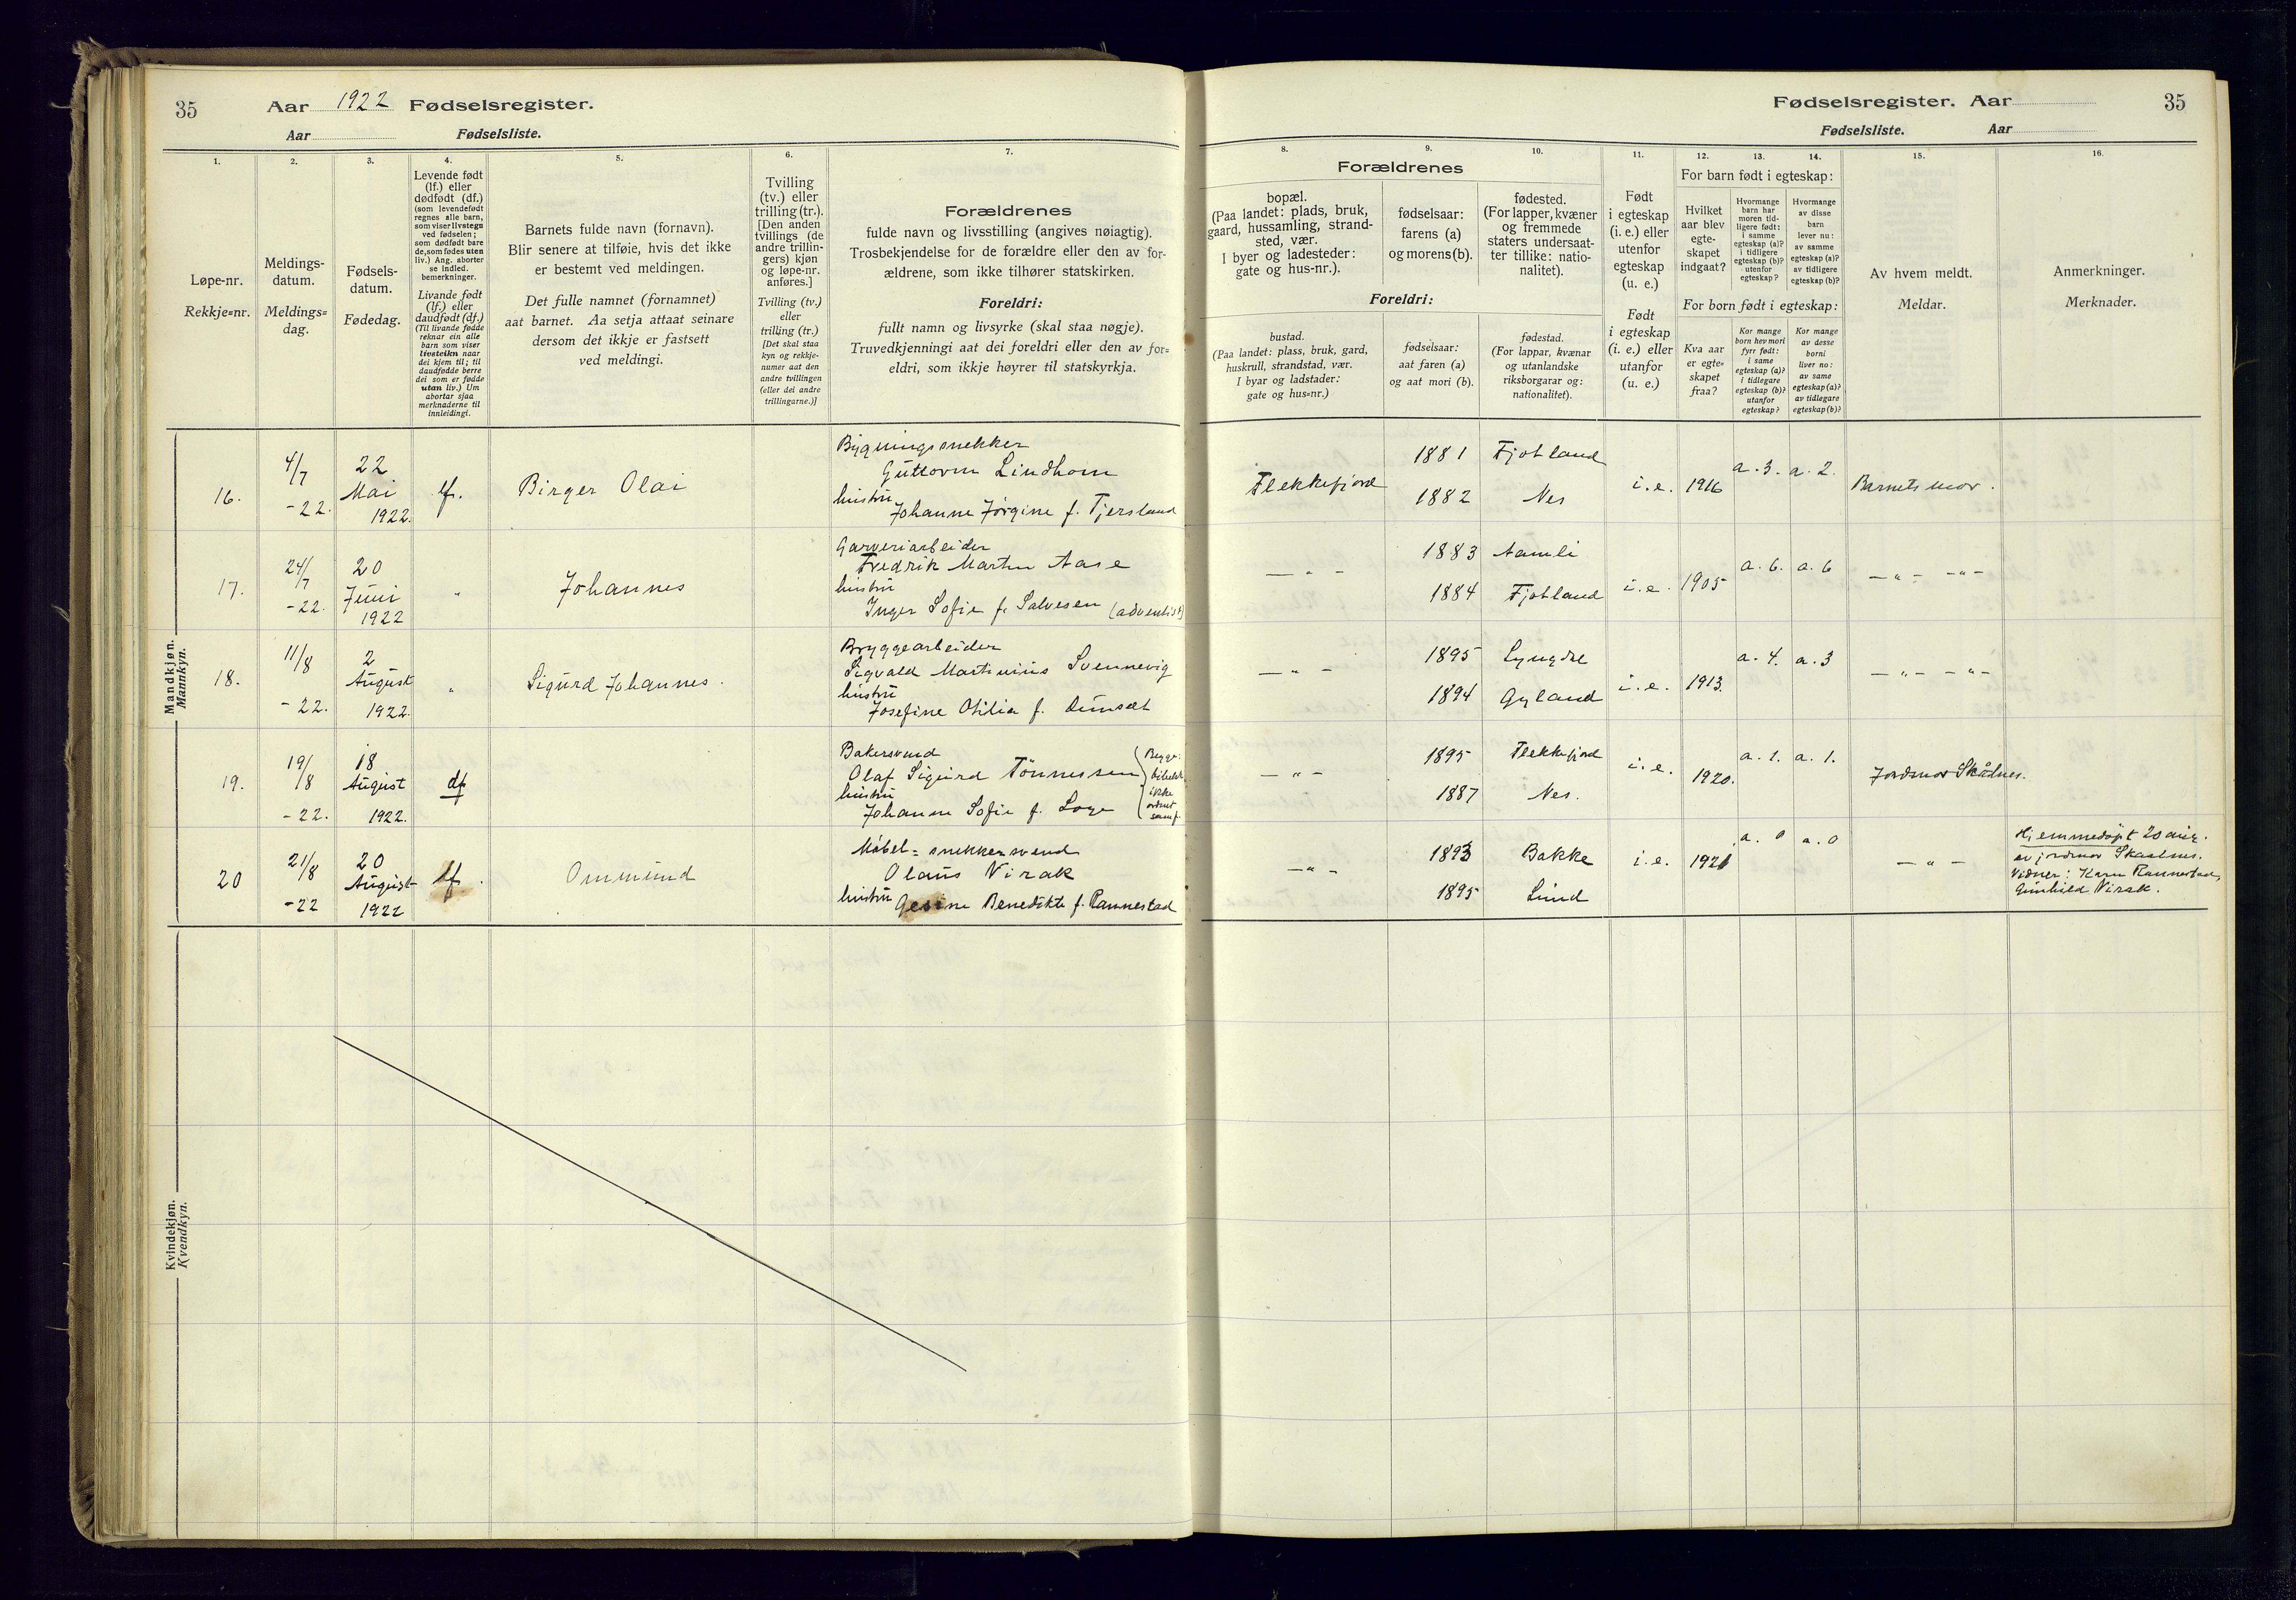 35 Aar 1922 Fødselsregister.
Aar Fødselsliste.
1.
Løpe-nr.
Rekkje=nr.
2.
Meldings-
datum.
Meldings=
dag.
3.
Fødsels-
datum.
Fødedag.
4.
Levende født
(lf.) eller
dødfødt (df.)
(som levendefødt
regnes alle barn,
som viser livstegn
ved fødselen;
som dødfødt bare
de, som fødes uten
liv.) Ang. aborter
se indled.
bemerkninger.
Livande født
(lf.) eller
daudfødt (df.)
(Til livande fødde
reknar ein alle
barn som viser
livsteikn naar
dei kjem til; til
daudfødde berre
dei som er fødde
utan liv.) Um
abortar sjaa
merknaderne til
innleidingi.
5.
Barnets fulde navn (fornavn).
Blir senere at tilføie, hvis det ikke
er bestemt ved meldingen.
Det fulle namnet (fornamnet)
aat barnet. Aa setja attaat seinare
dersom det ikkje er fastsett
ved meldingi.
6.
Tvilling
(tv.) eller
trilling (tr.).
[Den anden
tvillings (de
andre trillin-
gers) kjøn
og løpe-nr.
anføres.]
Tvilling (tv.)
eller
trilling (tr.)
[Det skal staa
kyn og rekkje-
numer aat den
andre tvillingen
(eller dei andre
trillingarne.)]
7.
Forældrenes
fulde navn og livsstilling (angives nøiagtig).
Trosbekjendelse for de forældre eller den av for-
ældrene, som ikke tilhører statskirken.
Foreldri:
fullt namn og livsyrke (skal staa nøgje).
Truvedkjenningi aat dei foreldri eller den av for=
eldri, som ikkje høyrer til statskyrkja.
Mandkjøn.
Mannkyn.
16. 4/7 -22. 22 Mai 1922. lf. Birger Olai
Bygningssnekker
Guttorm Lindhom
hustru
Johanne Jørgine f. Tjersland
17. 24/7 -22. 20 Juni 1922 " Johannes
Garveriarbeider
Fredrik Martin Aase
hustru
Inger Sofie f. Salvesen (adventist)
18. 11/8 -22. 2 August 1922. " Sigurd Johannes.
Bryggearbeider
Sigvald Martinius Svennevig
hustru
Josefine Otilia f.
19. 19/8 -22. 18 August 1922. df
Bakersvend
Olaf Sigurd Tønnessen
hustru
Johanne Sofie f. Loge
ikke
ordnet
samf.
20 21/8 -22 20 August 1922 lf. Ommund
Møbel=snekkersvend
Olaus Virak
hustru
Gesine Benedikte f. Rannestad
Kvindekjøn.
Kvendkyn.
Fødselsregister. Aar 35
Fødselsliste. Aar
8.
Forældrenes
bopæl.
(Paa landet: plads, bruk,
gaard, hussamling, strand-
sted, vær.
I byer og ladesteder:
gate og hus-nr.).
Foreldri:
bustad.
(Paa landet: plass, bruk, gard,
huskrull, strandstad, vær.
I byar og ladstader:
gate og hus=nr.)
9.
fødselsaar:
farens (a)
og morens (b).
fødselsaar:
aat faren (a)
og aat mori (b).
10.
fødested.
(For lapper, kvæner
og fremmede
staters undersaat-
ter tillike: natio-
nalitet).
fødestad.
(For lappar, kvænar
og utanlandske
riksborgarar og:
nationalitet).
11.
Født
i egteskap
(i. e.) eller
utenfor
egteskap
(u. e.)
Født
i egteskap
(i. e.) eller
utanfor
(u. e.)
12. 13. 14.
For barn født i egteskap:
Hvilket
aar blev
egte-
skapet
indgaat?
Hvormange
barn har
moren tid-
ligere født:
i samme
egteskap (a)?
i tidligere
egteskap (b)?
utenfor
egteskap?
Hvormange
av disse
barn
lever nu:
av samme
egteskap (a)?
av tidligere
egteskap (b)?
For born født i egteskap:
Kva aar
er egte=
skapet
fraa?
Kor mange
born hev mori
fyrr født:
i same
egteskap (a)?
i tidlegare
egteskap (b)?
utanfor
egteskap?
Kor mange
av desse
borni
liver no:
av same
egteskap (a)?
av tidlegare
egteskap (b)?
15.
Av hvem meldt.
Meldar.
16.
Anmerkninger.
Merknader.
Flekkefjord 1881 Fjotland 1882 Nes i.e. 1916 a.3. a.2. Barnets mor.
— " — 1883 Aamli 1884 Fjotland i.e. 1905 a.6. a.6 — " — — " —
— " — 1895 Lyngdal 1894 Gyland i.e. 1913. a.4. a.3 — " — — " —
— " — 1895 Flekkefjord 1887 Nes. i.e. 1920. a.1. a.1. Jordmor Skådnes.
— " — 1893 Bakke 1895 Lund i.e. 1921 a.0 a.0 — " —
Hjemmedøpt 20 aug.
av jordmor Skaadnes.
Vidner: Karn Rannestad,
Gunhild Virak.